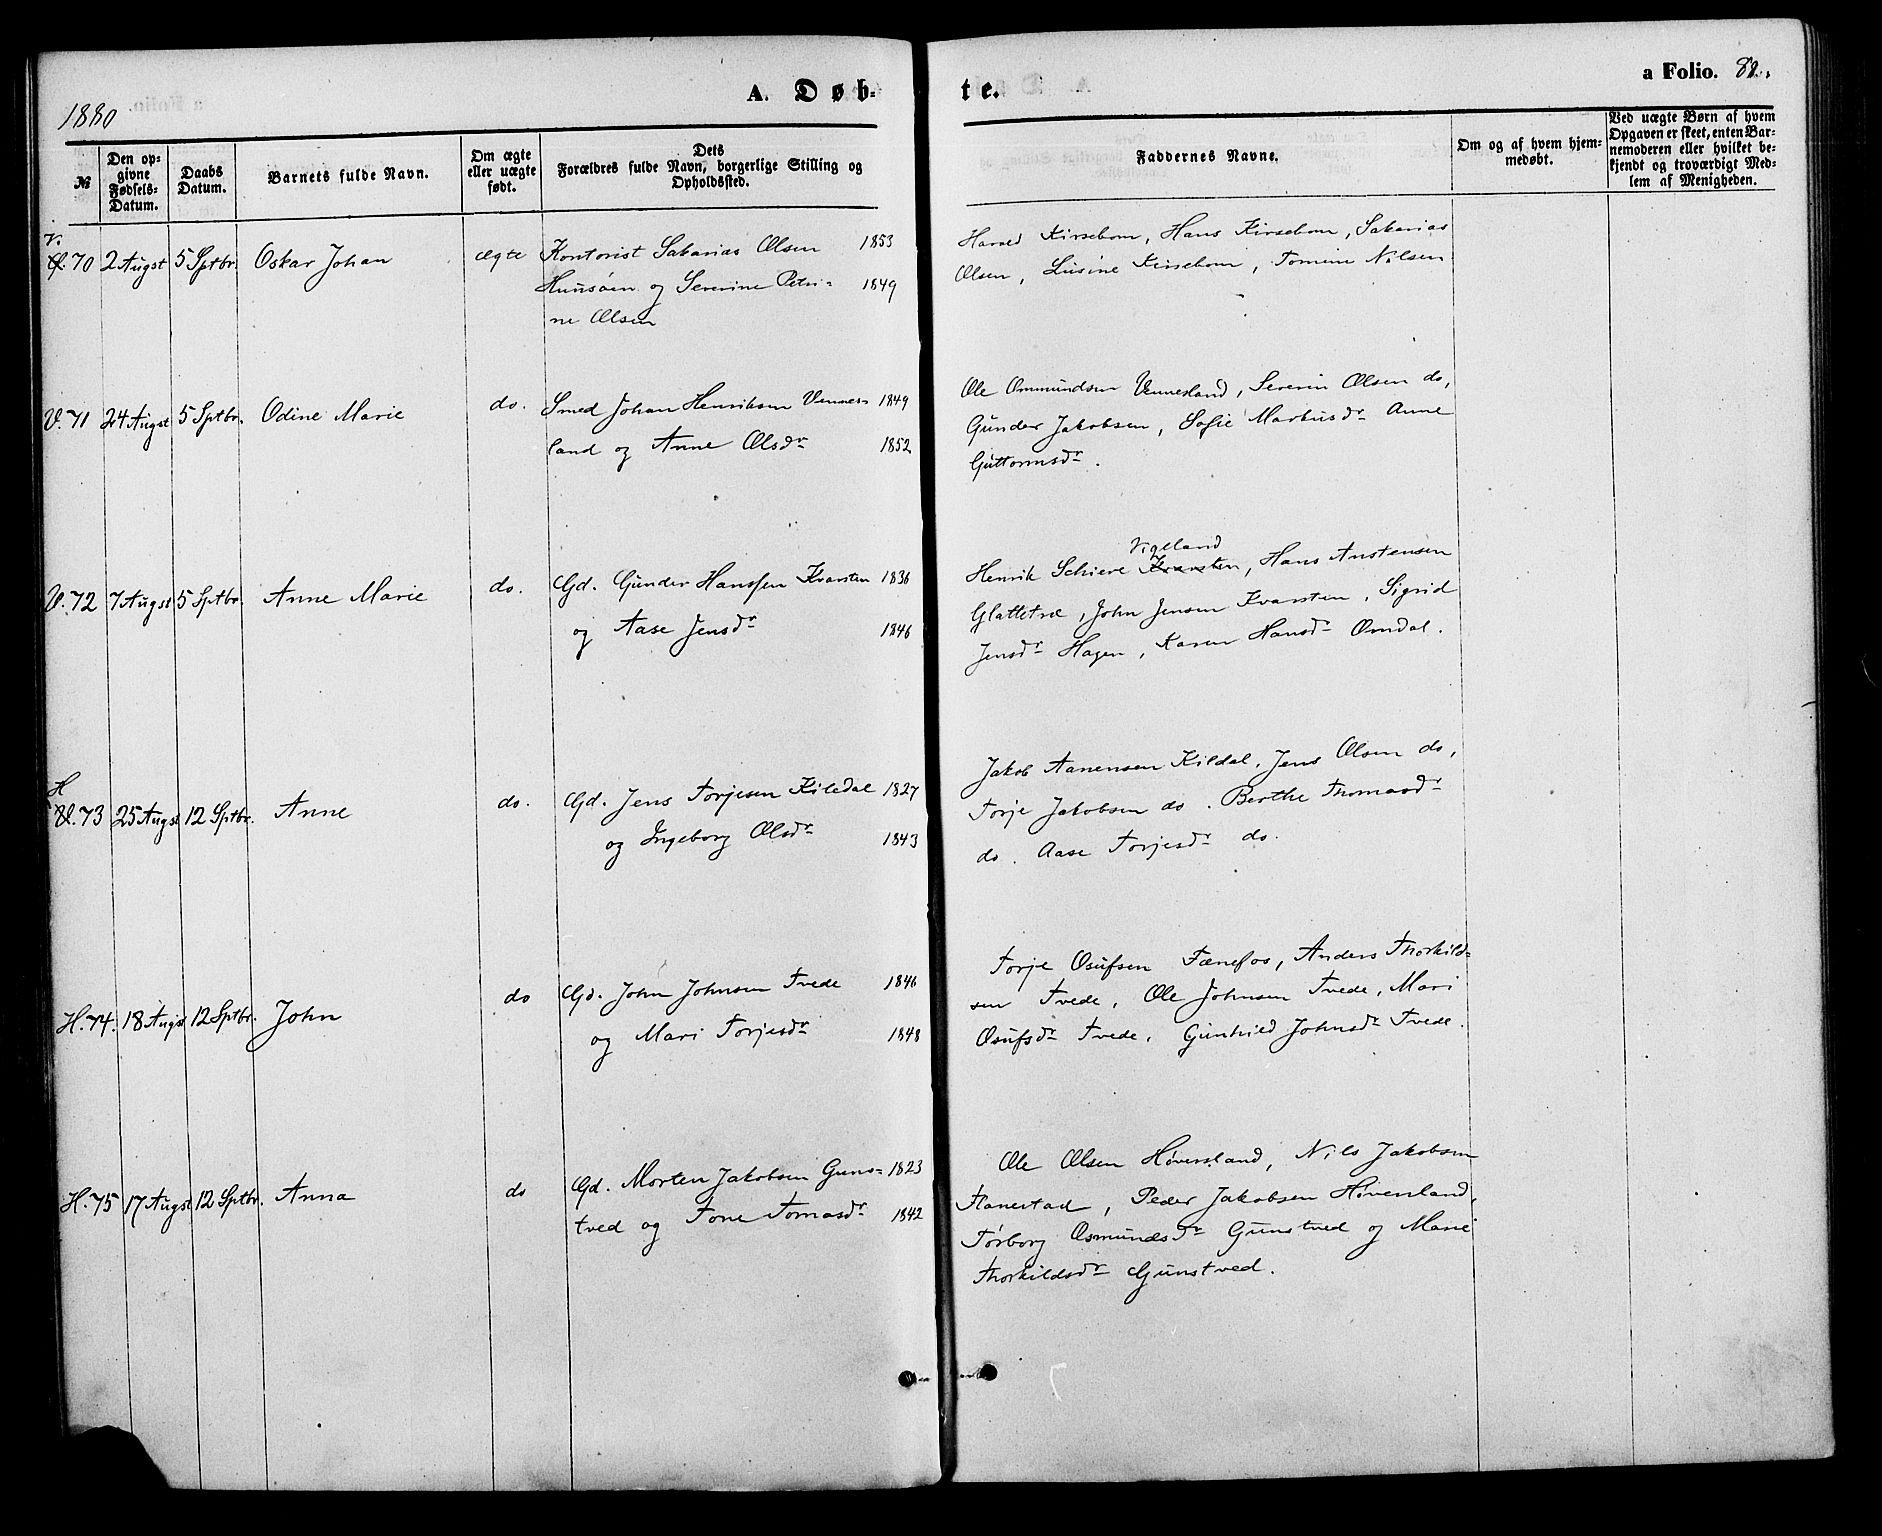 a Folio. 82.
1880
A. Døb-
te.
№
Den op-
givne
Fødsels-
Datum.
Daabs
Datum.
Barnets fulde Navn.
Om ægte
eller uægte
født.
Dets
Forældres fulde Navn, borgerlige Stilling og
Opholdssted.
Faddernes Navne.
Om og af hvem hjem-
medøbt.
Ved uægte Børn af hvem
Opgaven er skeet, enten Bar-
nemoderen eller hvilket be-
kjendt og troværdigt Med-
lem af Menigheden.
V. 70 2 Augst 5 Sptbr. Oskar Johan ægte Kontorist Sakarias Olsen 1853
Huusøen og Severine Petri- 1849
ne Olsen
Harald Kirsebom, Hans Kirsebom, Sakarias
Olsen, Lusine Kirsebom, Tomine Nilsen
V. 71 24 Augst 5 Sptbr. Odine Marie do. Smed Johan Henriksen Vennes- 1849
land og Anne Olsdr 1852
Ole Ommundsen Vennesland, Severin Olsen do,
Gunder Jakobsen, Sofie Markusdr Anne
Guttormsdr.
V. 72 7 Augst 5 Sptbr. Anne Marie do. Gd. Gunder Hanssen Kvarsten 1836
og Aase Jensdr 1846
Vigeland
Henrik Schiere Kvarsten, Hans Anstensen
Glattetræ, John Jensen Kvarsten, Sigrid
Jensdr Hagen, Karen Hansdr Omdal.
H
V. 73 25 Augst 12 Sptbr. Anne do. Gd. Jens Torjesen Kiledal 1827
og Ingeborg Olsdr 1843
Jakob Aanensen Kildal, Jens Olsen do,
Torje Jakobsen do. Berthe Thomasdr
do. Aase Torjesdr do.
H. 74. 18 Augst 12 Sptbr. John do Gd. John Johnsen Tvede 1846
og Mari Torjesdr 1848
Torje Osufsen Fænefos, Anders Thorkild-
sen Tvede, Ole Johnsen Tvede, Mari
Osufsdr Tvede, Gunhild Johnsdr Tvede.
H. 75 17 Augst 12 Sptbr. Anna do Gd. Morten Jakobsen Guns- 1823
tved og Tone Tomasdr 1842
Ole Olsen Høversland, Nils Jakobsen
Flanestad, Peder Jakobsen Høversland,
Tørborg Osmundsdr Gunstved og Marie
Thorkildsdr Gunstved.